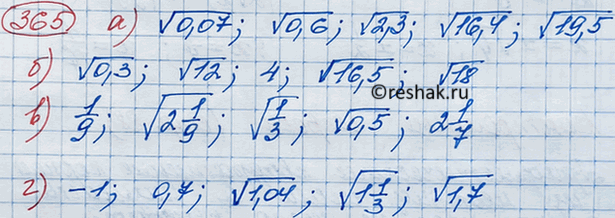 365 а) √0,07; √0,6; √2,3; √16,4; √19,5
б) √0,3; √12; 4; √16,5; √18
©reshak.ru
в) 1/9; √2 1/9; √1/3; √0,5; 2 1/7
г) -1; 0,7; √1,04; √1 1/3; √1,7